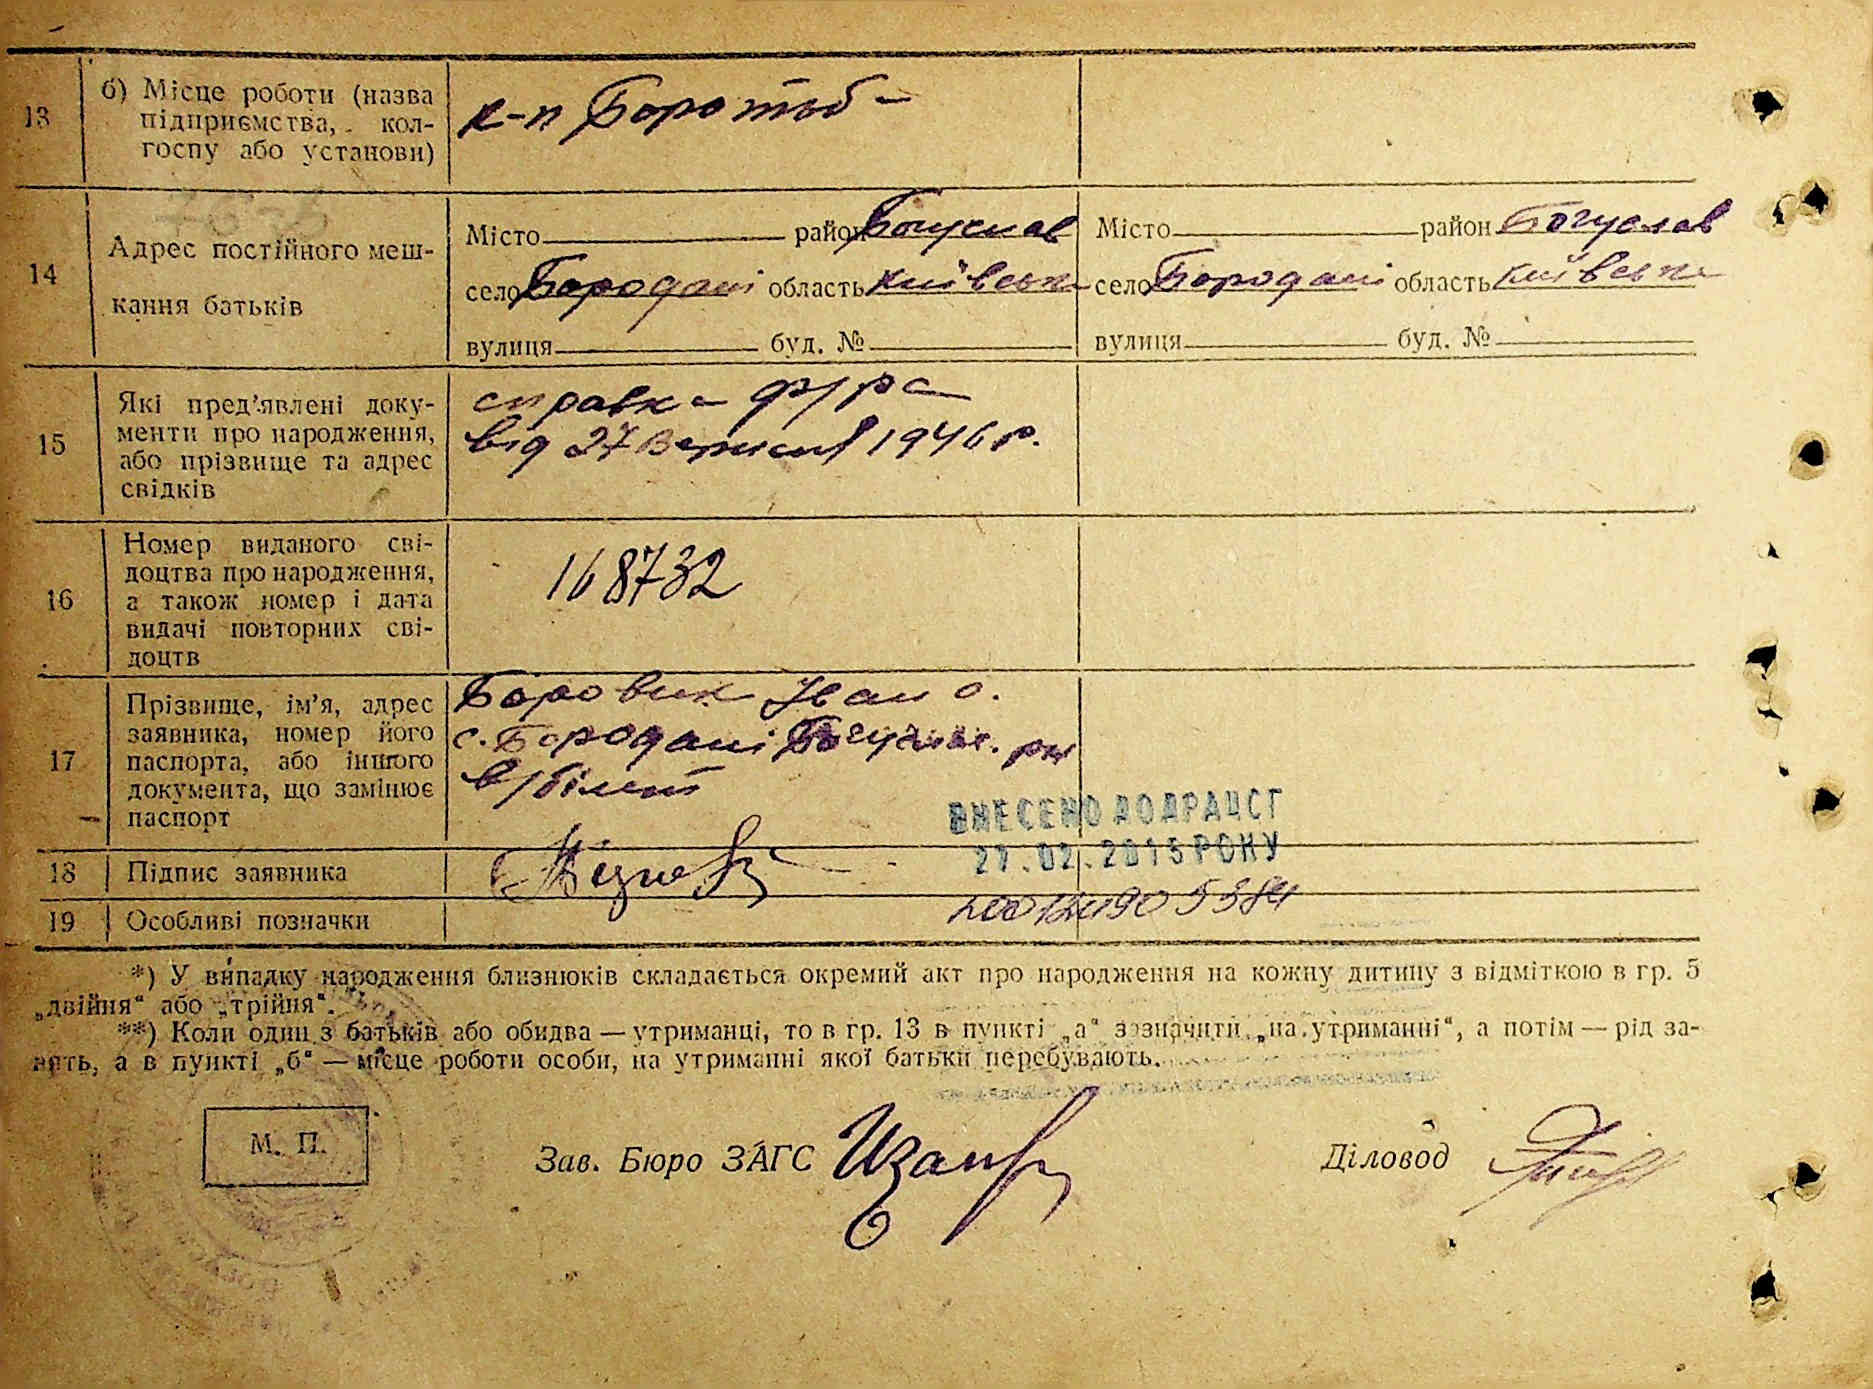 13
б) Місце роботи (назва
підприємства, кол-
госпу або установи)
к-п Боротьб-
14
Адрес постійного меш-
кання батьків
Місто район Богуслав
село Бородані область Київськ
вулиця буд. №
Місто район Богуслав
село Бородані область Київськ
вулиця буд. №
15
Які пред'явлені доку-
менти про народження,
або прізвище та адрес
свідків
справка
від 27 Вересня 1946 р.
16
Номер виданого сві-
доцтва про народження,
а також номер і дата
видачі повторних сві-
доцтв
168732
17
Прізвище, ім'я, адрес
заявника, номер його
паспорта, або іншого
документа, що замінює
паспорт
Боровик Іван О.
с. Бородані Богуслав. рн
в/білет
ВНЕСЕНО ДО ДРАЦСГ
27.02.2015 РОКУ
18 Підпис заявника
19 Особливі позначки
*) У випадку народження близнюків складається окремий акт про народження на кожну дитину з відміткою в гр. 5
„двійня“ або „трійня“.
**) Коли один з батьків або обидва — утриманці, то в гр. 13 в пункті „а“ зазначити „на утриманні“, а потім — рід за-
нять, а в пункті „б“ — місце роботи особи, на утриманні якої батьки перебувають.
М. П.
Зав. Бюро ЗАГС
Діловод